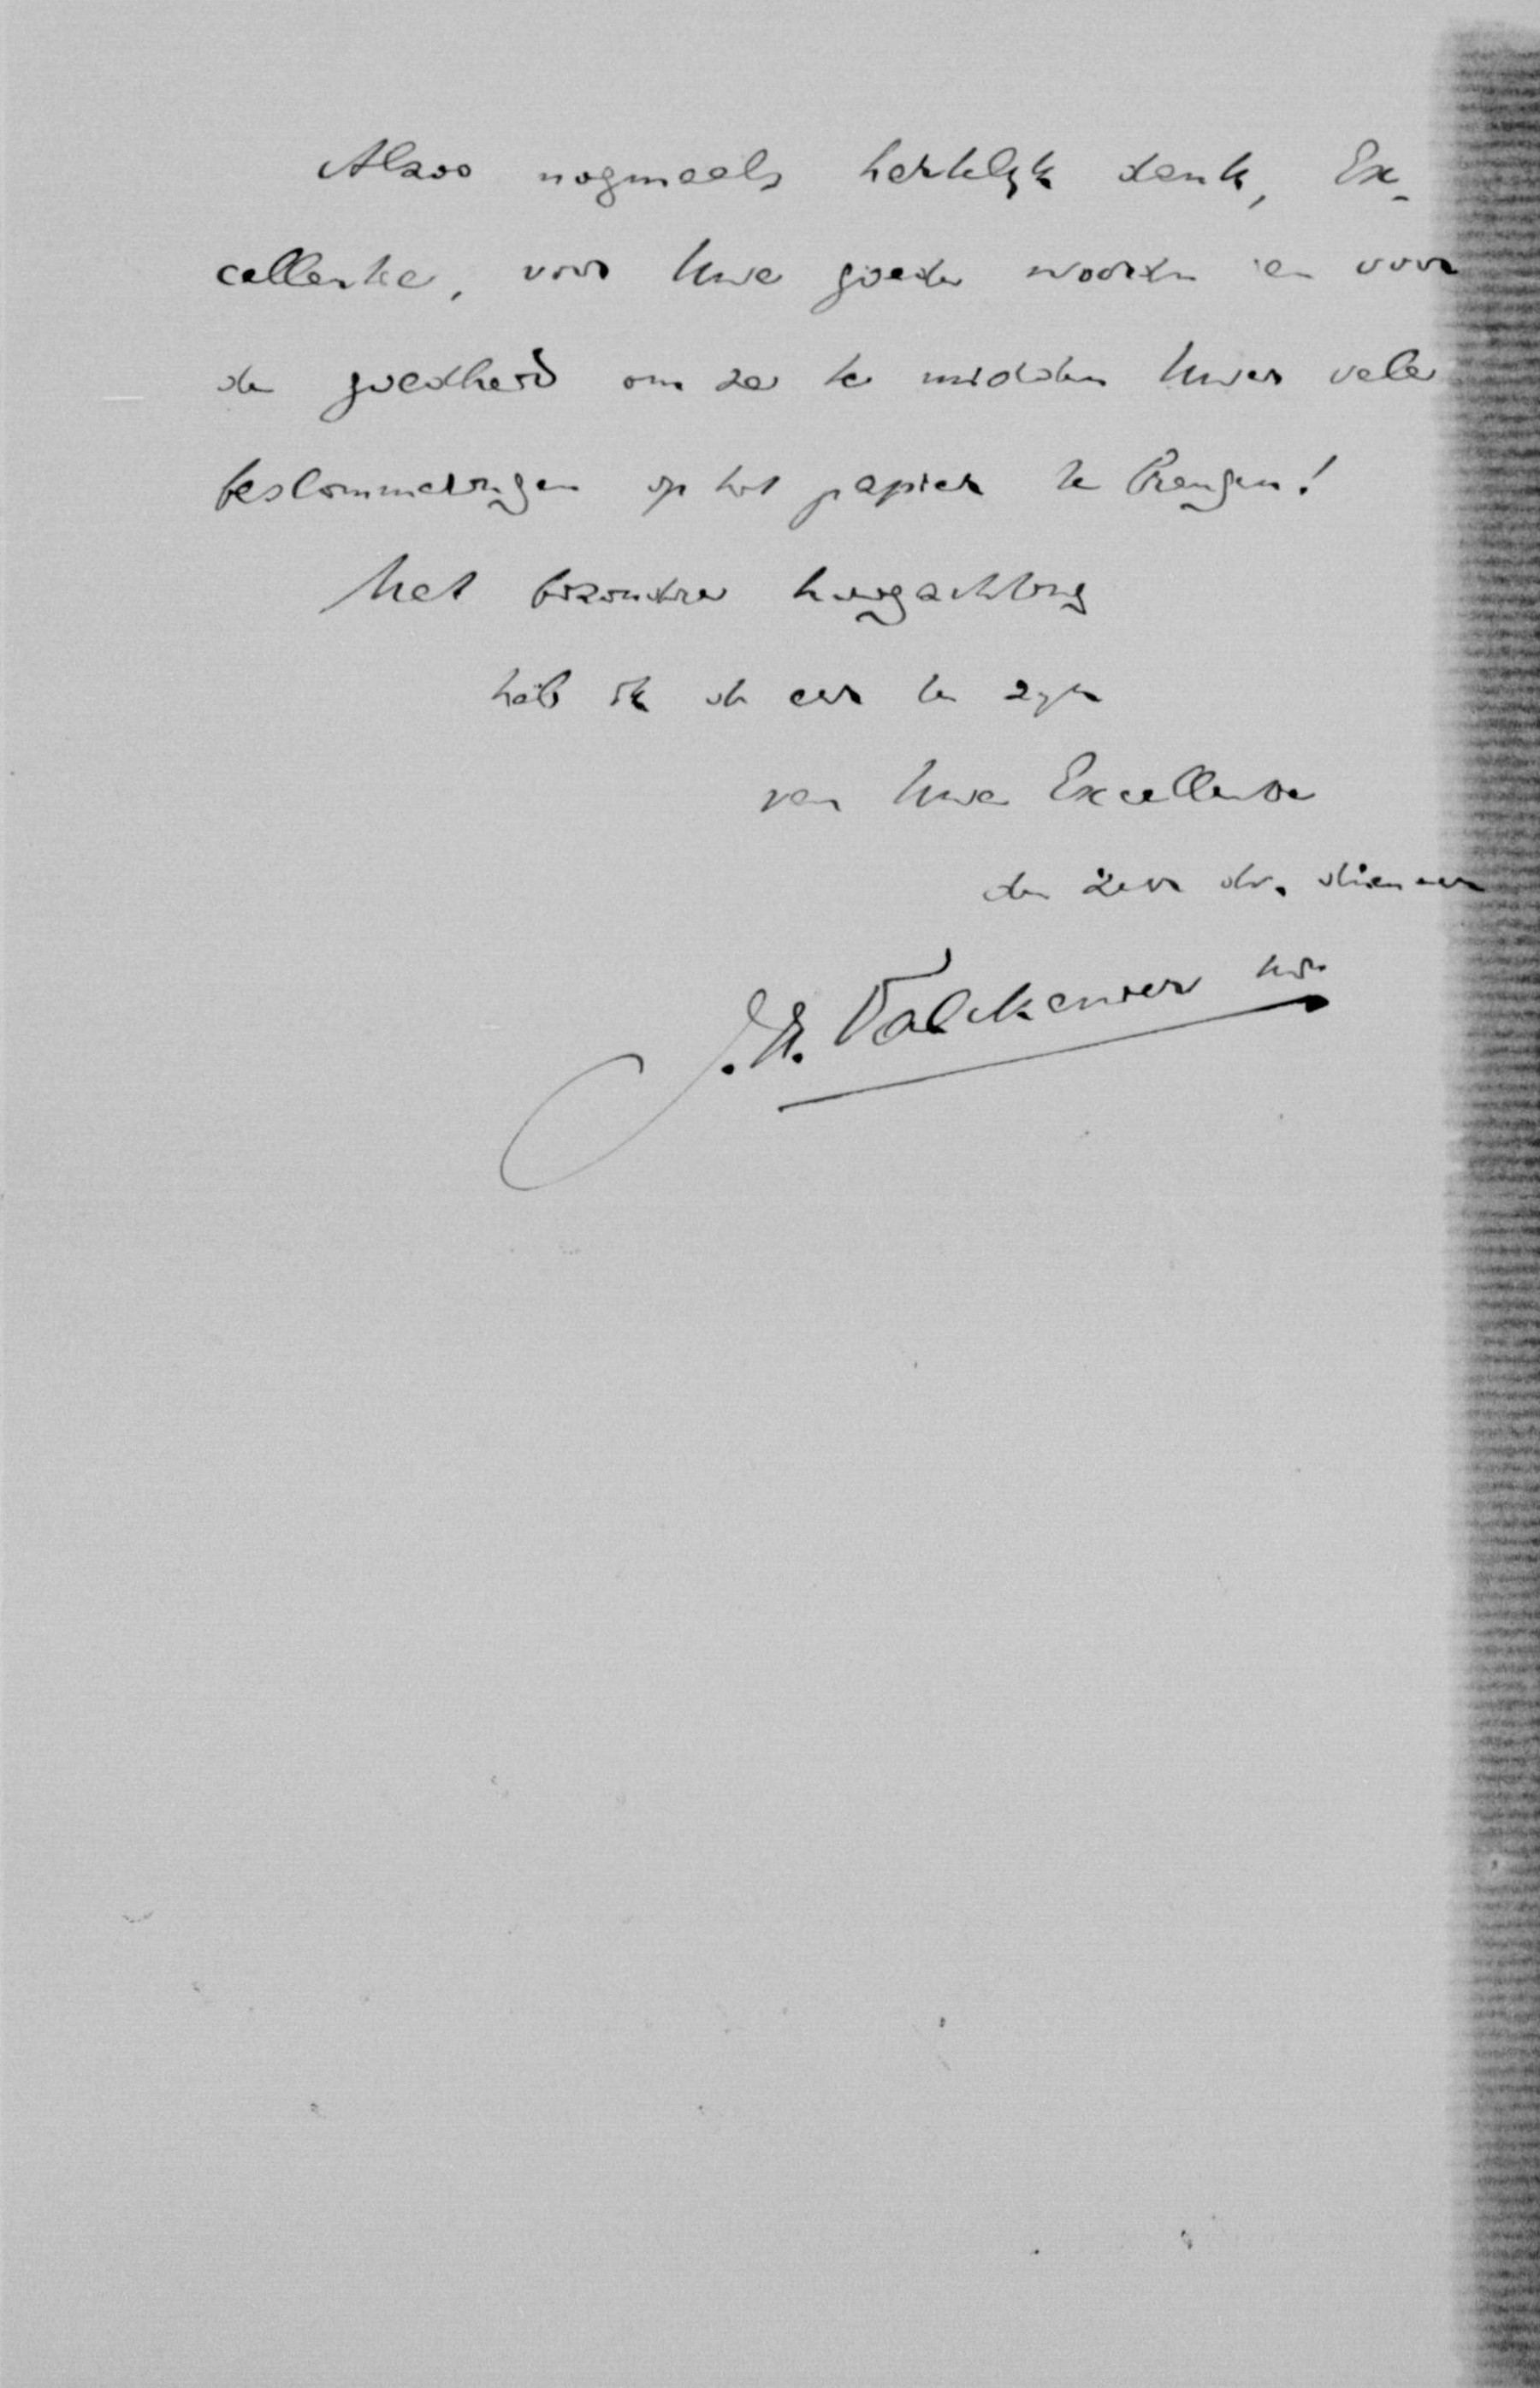 Alzoo nogmaals hartelyk dank, Ex-
cellentie, voor Uwe goede woorden en voor
de goedheid om ze te midden Uwer vele
beslommeringen op het papier te brengen!
Met bizondere hoogachting
heb ik de eer te zyn
van Uwe Excellentie
de zeer dw. dienaar
J. H. Valckenier